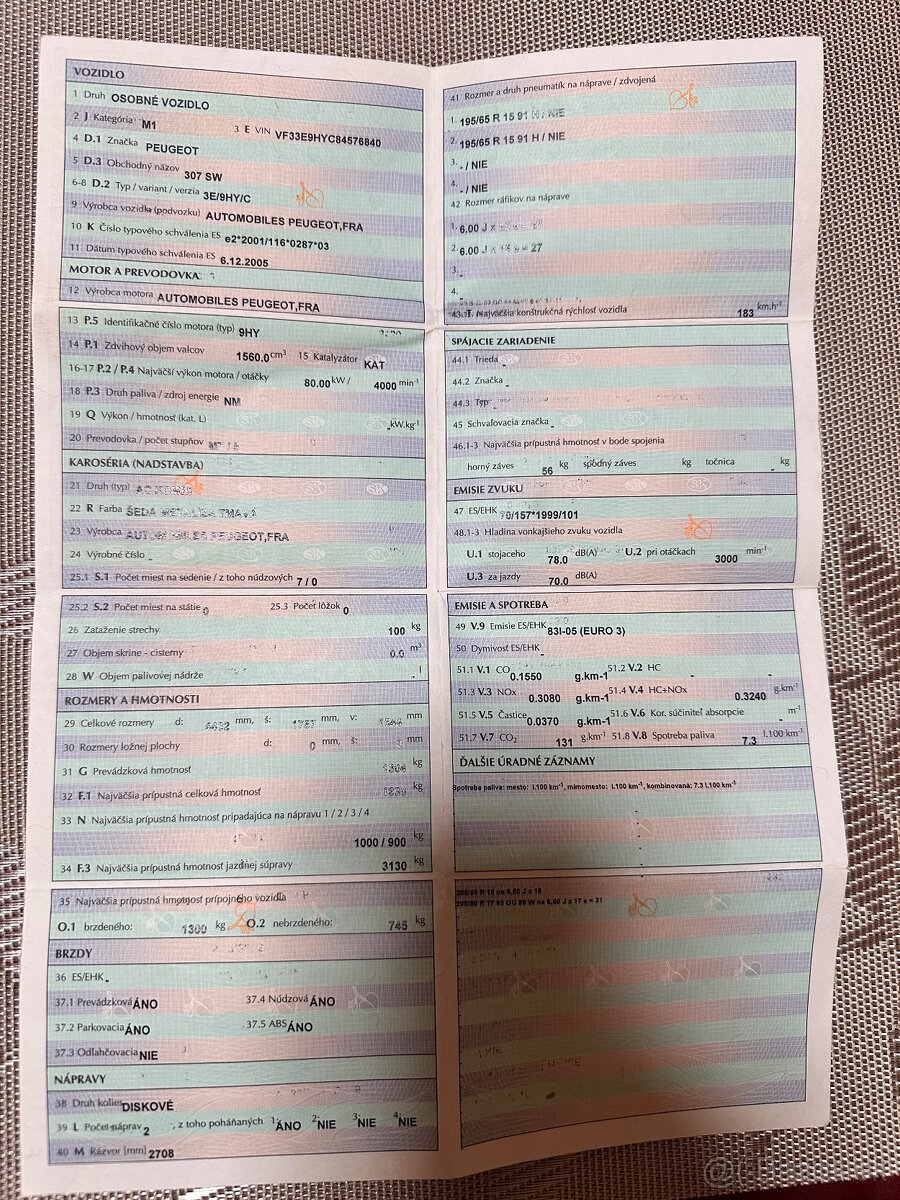 VOZIDLO
1 Druh OSOBNÉ VOZIDLO
2 J Kategória M1 3 E VIN VF33E9HYC84576840
4 D.1 Značka PEUGEOT
5 D.3 Obchodný názov 307 SW
6-8 D.2 Typ / variant / verzia 3E/9HY/C
9 Výrobca vozidla (podvozku) AUTOMOBILES PEUGEOT,FRA
10 K Číslo typového schválenia ES e2*2001/116*0287*03
11 Dátum typového schválenia ES 6.12.2005
MOTOR A PREVODOVKA
12 Výrobca motora AUTOMOBILES PEUGEOT,FRA
13 P.5 Identifikačné číslo motora (typ) 9HY
14 P.1 Zdvihový objem valcov 1560.0 cm³ 15 Katalyzátor KAT
16-17 P.2 / P.4 Najväčší výkon motora / otáčky 80.00 kW / 4000 min⁻¹
18 P.3 Druh paliva / zdroj energie NM
19 Q Výkon / hmotnosť (kat. L) - kW.kg⁻¹
20 Prevodovka / počet stupňov
KAROSÉRIA (NADSTAVBA)
21 Druh (typ)
22 R Farba ŠEDÁ METALÍZA TMAVÁ
23 Výrobca AUTOMOBILES PEUGEOT,FRA
24 Výrobné číslo -
25.1 S.1 Počet miest na sedenie / z toho núdzových 7 / 0
25.2 S.2 Počet miest na státie 0 25.3 Počet lôžok 0
26 Zataženie strechy 100 kg
27 Objem skrine - cisterny 0.0 m³
28 W Objem palivovej nádrže . l
ROZMERY A HMOTNOSTI
29 Celkové rozmery d: mm, š: mm, v: mm
30 Rozmery ložnej plochy d: 0 mm, š: mm
31 G Prevádzková hmotnosť kg
32 F.1 Najväčšia prípustná celková hmotnosť kg
33 N Najväčšia prípustná hmotnosť pripadajúca na nápravu 1 / 2 / 3 / 4
1000 / 900 kg
34 F.3 Najväčšia prípustná hmotnosť jazdnej súpravy 3130 kg
35 Najväčšia prípustná hmotnosť prípojného vozidla
O.1 brzdeného: 1300 kg O.2 nebrzdeného: 745 kg
BRZDY
36 ES/EHK -
37.1 Prevádzková ÁNO 37.4 Núdzová ÁNO
37.2 Parkovacia ÁNO 37.5 ABS ÁNO
37.3 Odľahčovacia NIE
NÁPRAVY
38 Druh kolies DISKOVÉ
39 L Počet náprav 2 , z toho poháňaných 1. ÁNO 2. NIE 3. NIE 4. NIE
40 M Rázvor [mm] 2708
41 Rozmer a druh pneumatík na náprave / zdvojená
1. 195/65 R 15 91 H / NIE
2. 195/65 R 15 91 H / NIE
3. - / NIE
4. - / NIE
42 Rozmer ráfikov na náprave
1. 6.00 J x 27
2. 6.00 J x = 27
3. -
4.
43 T Najväčšia konštrukčná rýchlosť vozidla 183 km.h⁻¹
SPÁJACIE ZARIADENIE
44.1 Trieda -
44.2 Značka -
44.3 Typ
45 Schvaľovacia značka -
46.1-3 Najväčšia prípustná hmotnosť v bode spojenia
horný záves 56 kg spodný záves kg točnica - kg
EMISIE ZVUKU
47 ES/EHK 70/157*1999/101
48.1-3 Hladina vonkajšieho zvuku vozidla
U.1 stojaceho 78.0 dB(A) U.2 pri otáčkach 3000 min⁻¹
U.3 za jazdy 70.0 dB(A)
EMISIE A SPOTREBA
49 V.9 Emisie ES/EHK 83I-05 (EURO 3)
50 Dymivosť ES/EHK -
51.1 V.1 CO 0.1550 g.km-1 51.2 V.2 HC - -
51.3 V.3 NOx 0.3080 g.km-1 51.4 V.4 HC+NOx 0.3240 g.km⁻¹
51.5 V.5 Častice 0.0370 g.km-1 51.6 V.6 Kor. súčiniteľ absorpcie - m⁻¹
51.7 V.7 CO₂ 131 g.km⁻¹ 51.8 V.8 Spotreba paliva 7.3 l.100 km⁻¹
ĎALŠIE ÚRADNÉ ZÁZNAMY
Spotreba paliva: mesto: l.100 km⁻¹, mimomesto: l.100 km⁻¹, kombinovaná: 7.3 l.100 km⁻¹
205/55 R 16 na 6,50 J x 16
205/50 R 17 93 OU 89 W na 6,50 J x 17 e = 31